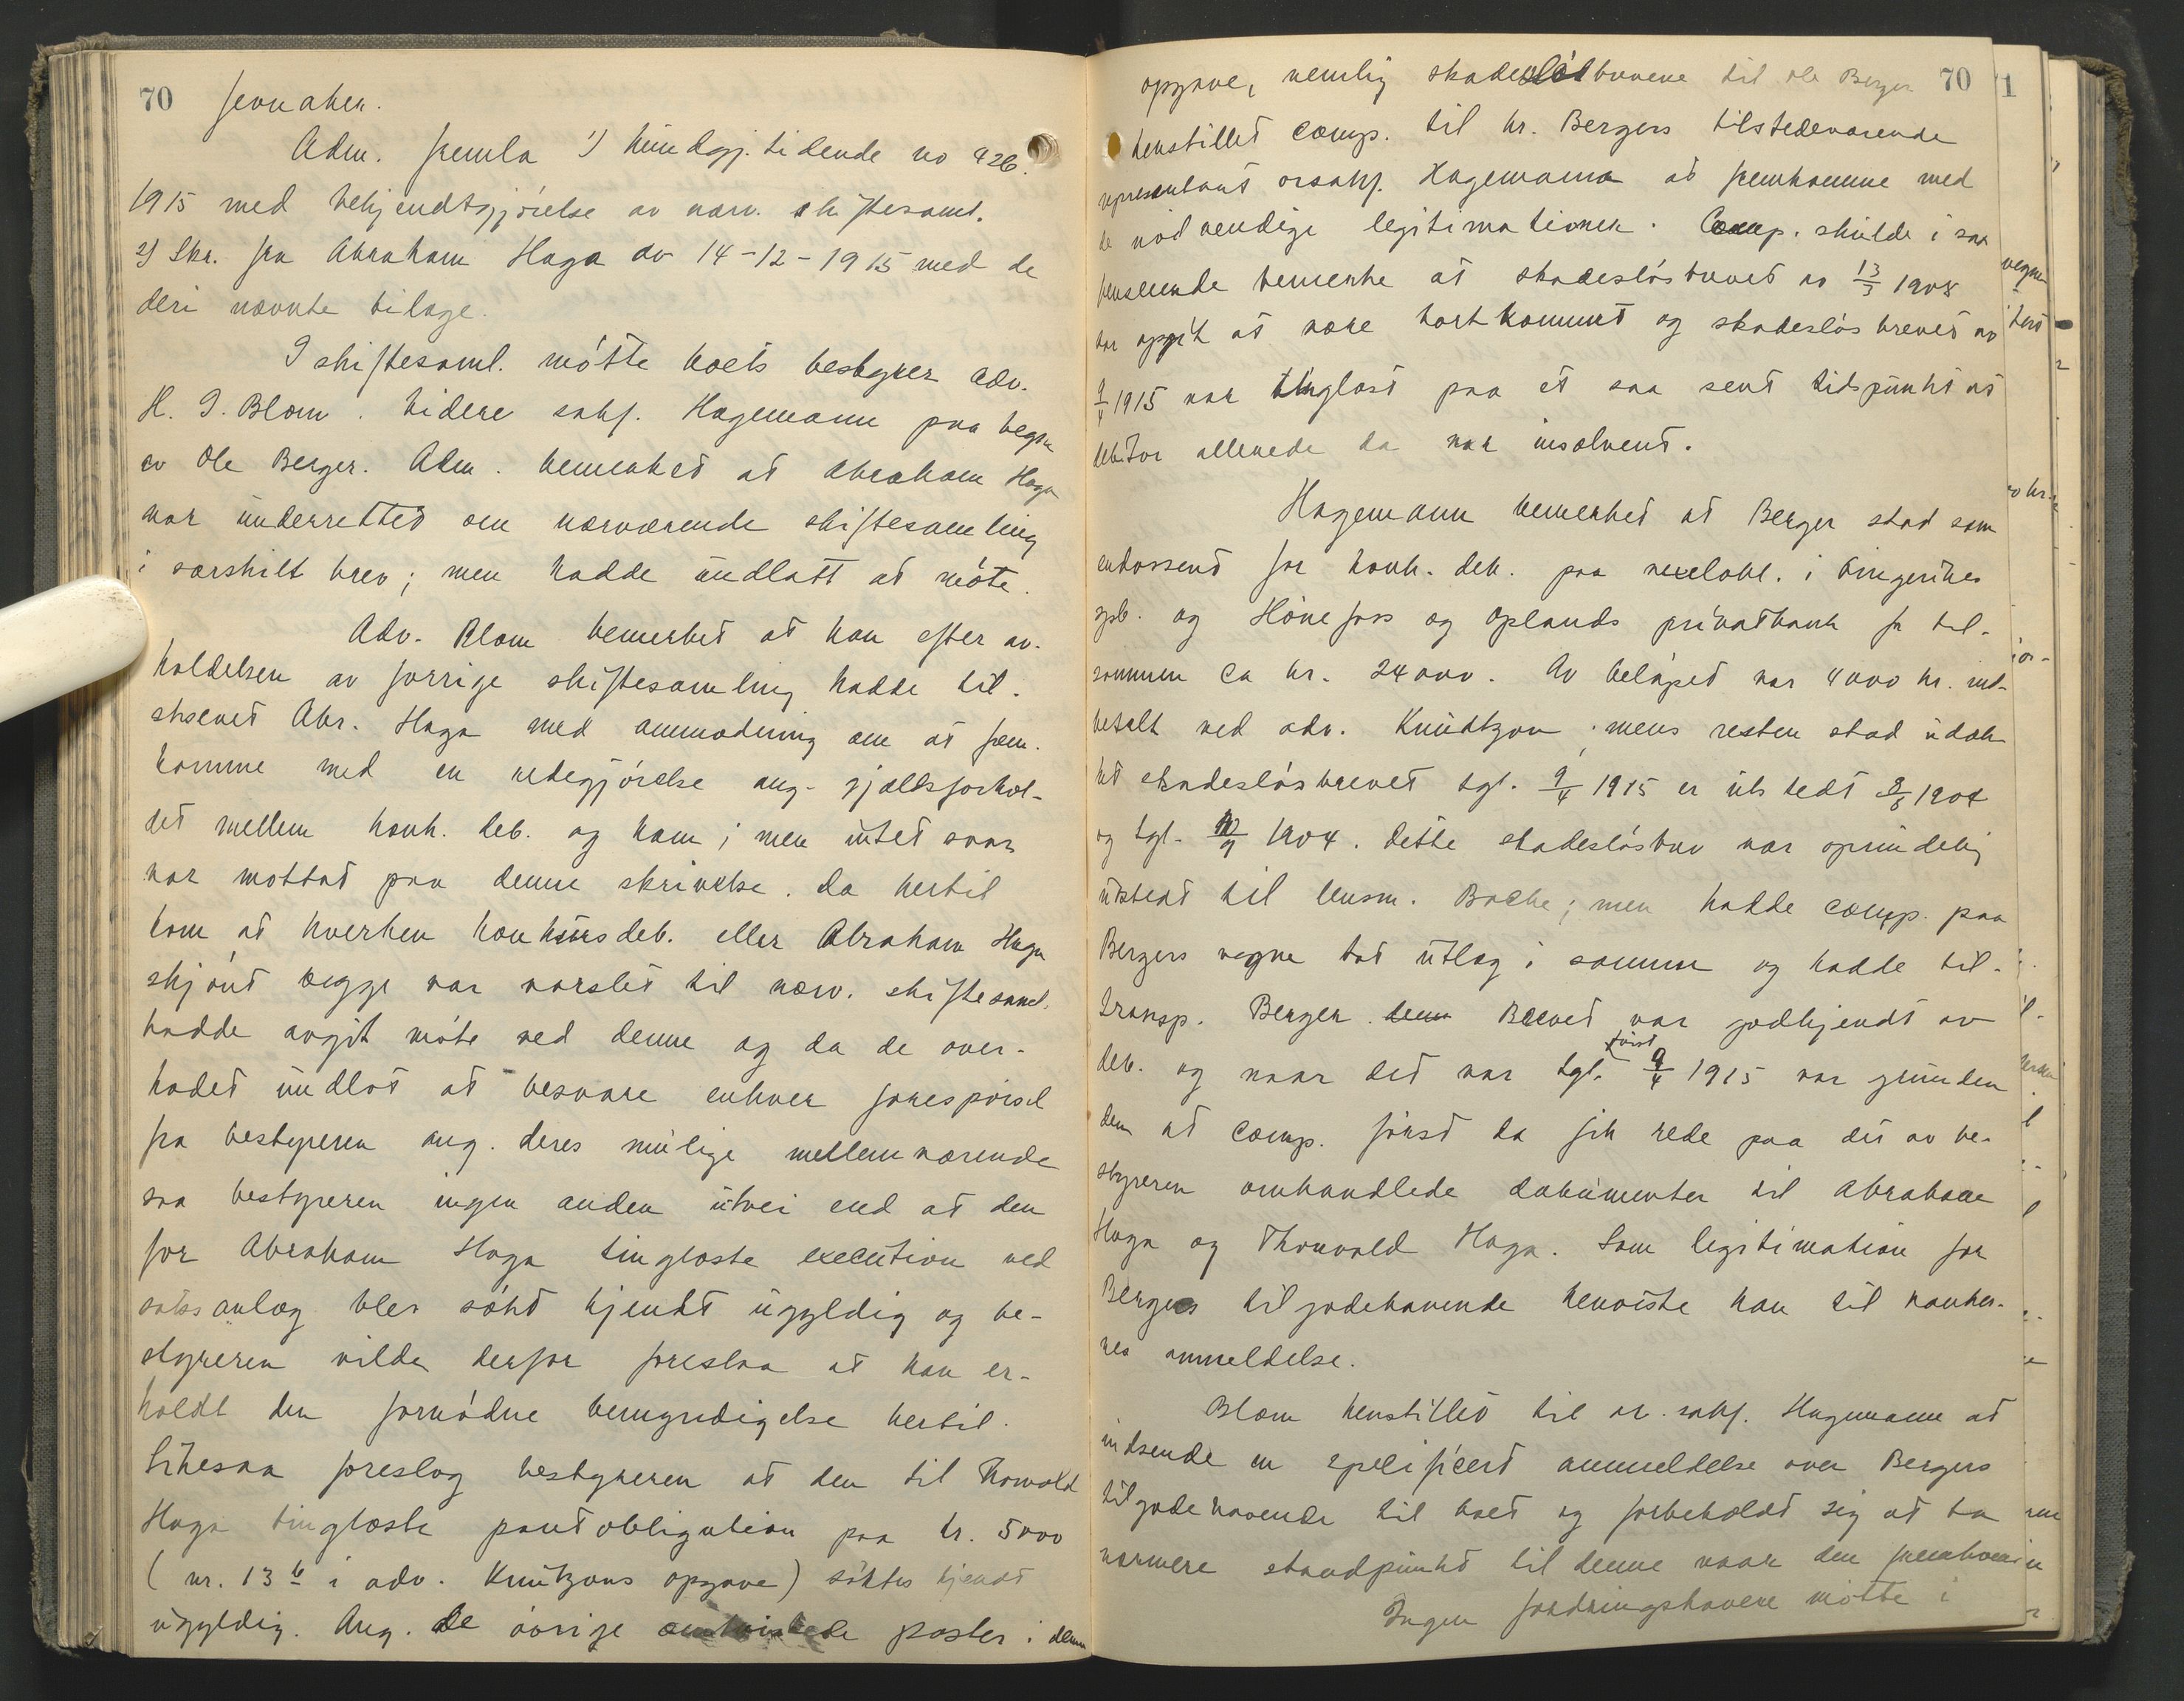 70 Jevnaker.
Adm. fremla 1) kundgj. tidende no 426.
1915 med bekjendtgjörelse av nærv. skiftesaml.
2) Skr. fra Abraham Haga av 14-12-1915 med de
deri nævnte bilage.
I skiftesaml. mötte boets bestyrer adv.
H. I. Blom. Videre sakf. Hagemann paa vegne
av Ole Berger. Adm. bemerket at Abraham Haga
var underrettet om nærværende skiftesamling
i særskilt brev; men hadde undlatt at möte.
Adv. Blom bemerket at han efter av-
holdelsen av forrige skiftesamling hadde til-
skrevet Abr. Haga med anmodning om at frem-
komme med en redegjörelse ang. gjældsforhol-
det mellem konk. deb. og ham; men intet svar
var mottat paa denne skrivelse. Da hertil
kom at hverken konkursdeb. eller Abraham Haga
skjönt begge var varslet til nærv. skiftesaml.
hadde avgit möte ved denne og da de over-
hodet undlot at besvare enhver forespörsel
fra bestyreren ang. deres mulige mellemværende
saa bestyreren ingen anden utvei end at den
for Abraham Haga tinglæste execution ved
saksanlæg blev sökt kjendt ugyldig og be-
styreren vilde derfor foreslaa at han er-
holdt den fornödne bemyndigelse hertil.
Likesaa foreslog bestyreren at den til Thorvald
Haga tinglæste pantobligation paa kr. 5000
(nr. 13 b i adv. Knutzons opgave) söktes kjendt
ugyldig. Ang. de övrige omtvistede poster i denne
opgave, nemlig skadeslösbrevene til Ole Berger 70
henstillet comp. til hr. Bergers tilstedeværende
representant orsakf. Hagemann at fremkomme med
de nödvendige legitimationer. Comp. skulde i saa
henseende bemerke at skadeslösbrevet av 13/3 1908
var opgit at være bortkommet og skadeslösbrevet av
9/4 1915 var tinglæst paa et saa sent tidspunkt at
debitor allerede da var insolvent.
Hagemann bemerket at Berger stod som
endossent for konk. deb. paa vexelobl. i Ringerikes
spb. og Hönefoss og Oplands privatbank fr til-
sammen ca kr. 24000. Av belöpet var 4000 kr. ind-
betalt ved adv. Knudtzon; mens resten stod udæk
ket skadeslösbrevet tgl. 9/4 1915 er utstedt 1904
og tgl. 1904. Dette skadeslösbrev var oprindelig
utstedt til lensm. Bache; men hadde comp. paa
Bergers vegne tat utlæg i samme og hadde til-
transp. Berger. Brevet var godkjendt av
deb. og naar det var tgl. först 9/4 1915 var grunden
den at comp. först da fik rede paa det av be-
styreren omhandlede dokumenter til Abraham
Haga og Thorvald Haga. Som legitimation for
Bergers tilgodehavende henviste han til banker-
nes anmeldelse.
Blom henstillet til or. sakf. Hagemann at
indsende en specificert anmeldelse over Bergers
tilgodehavende til boet og forbeholdt sig at ta
nærmere standpunkt til denne naar den fremkom
Ingen fordringshavere mötte i